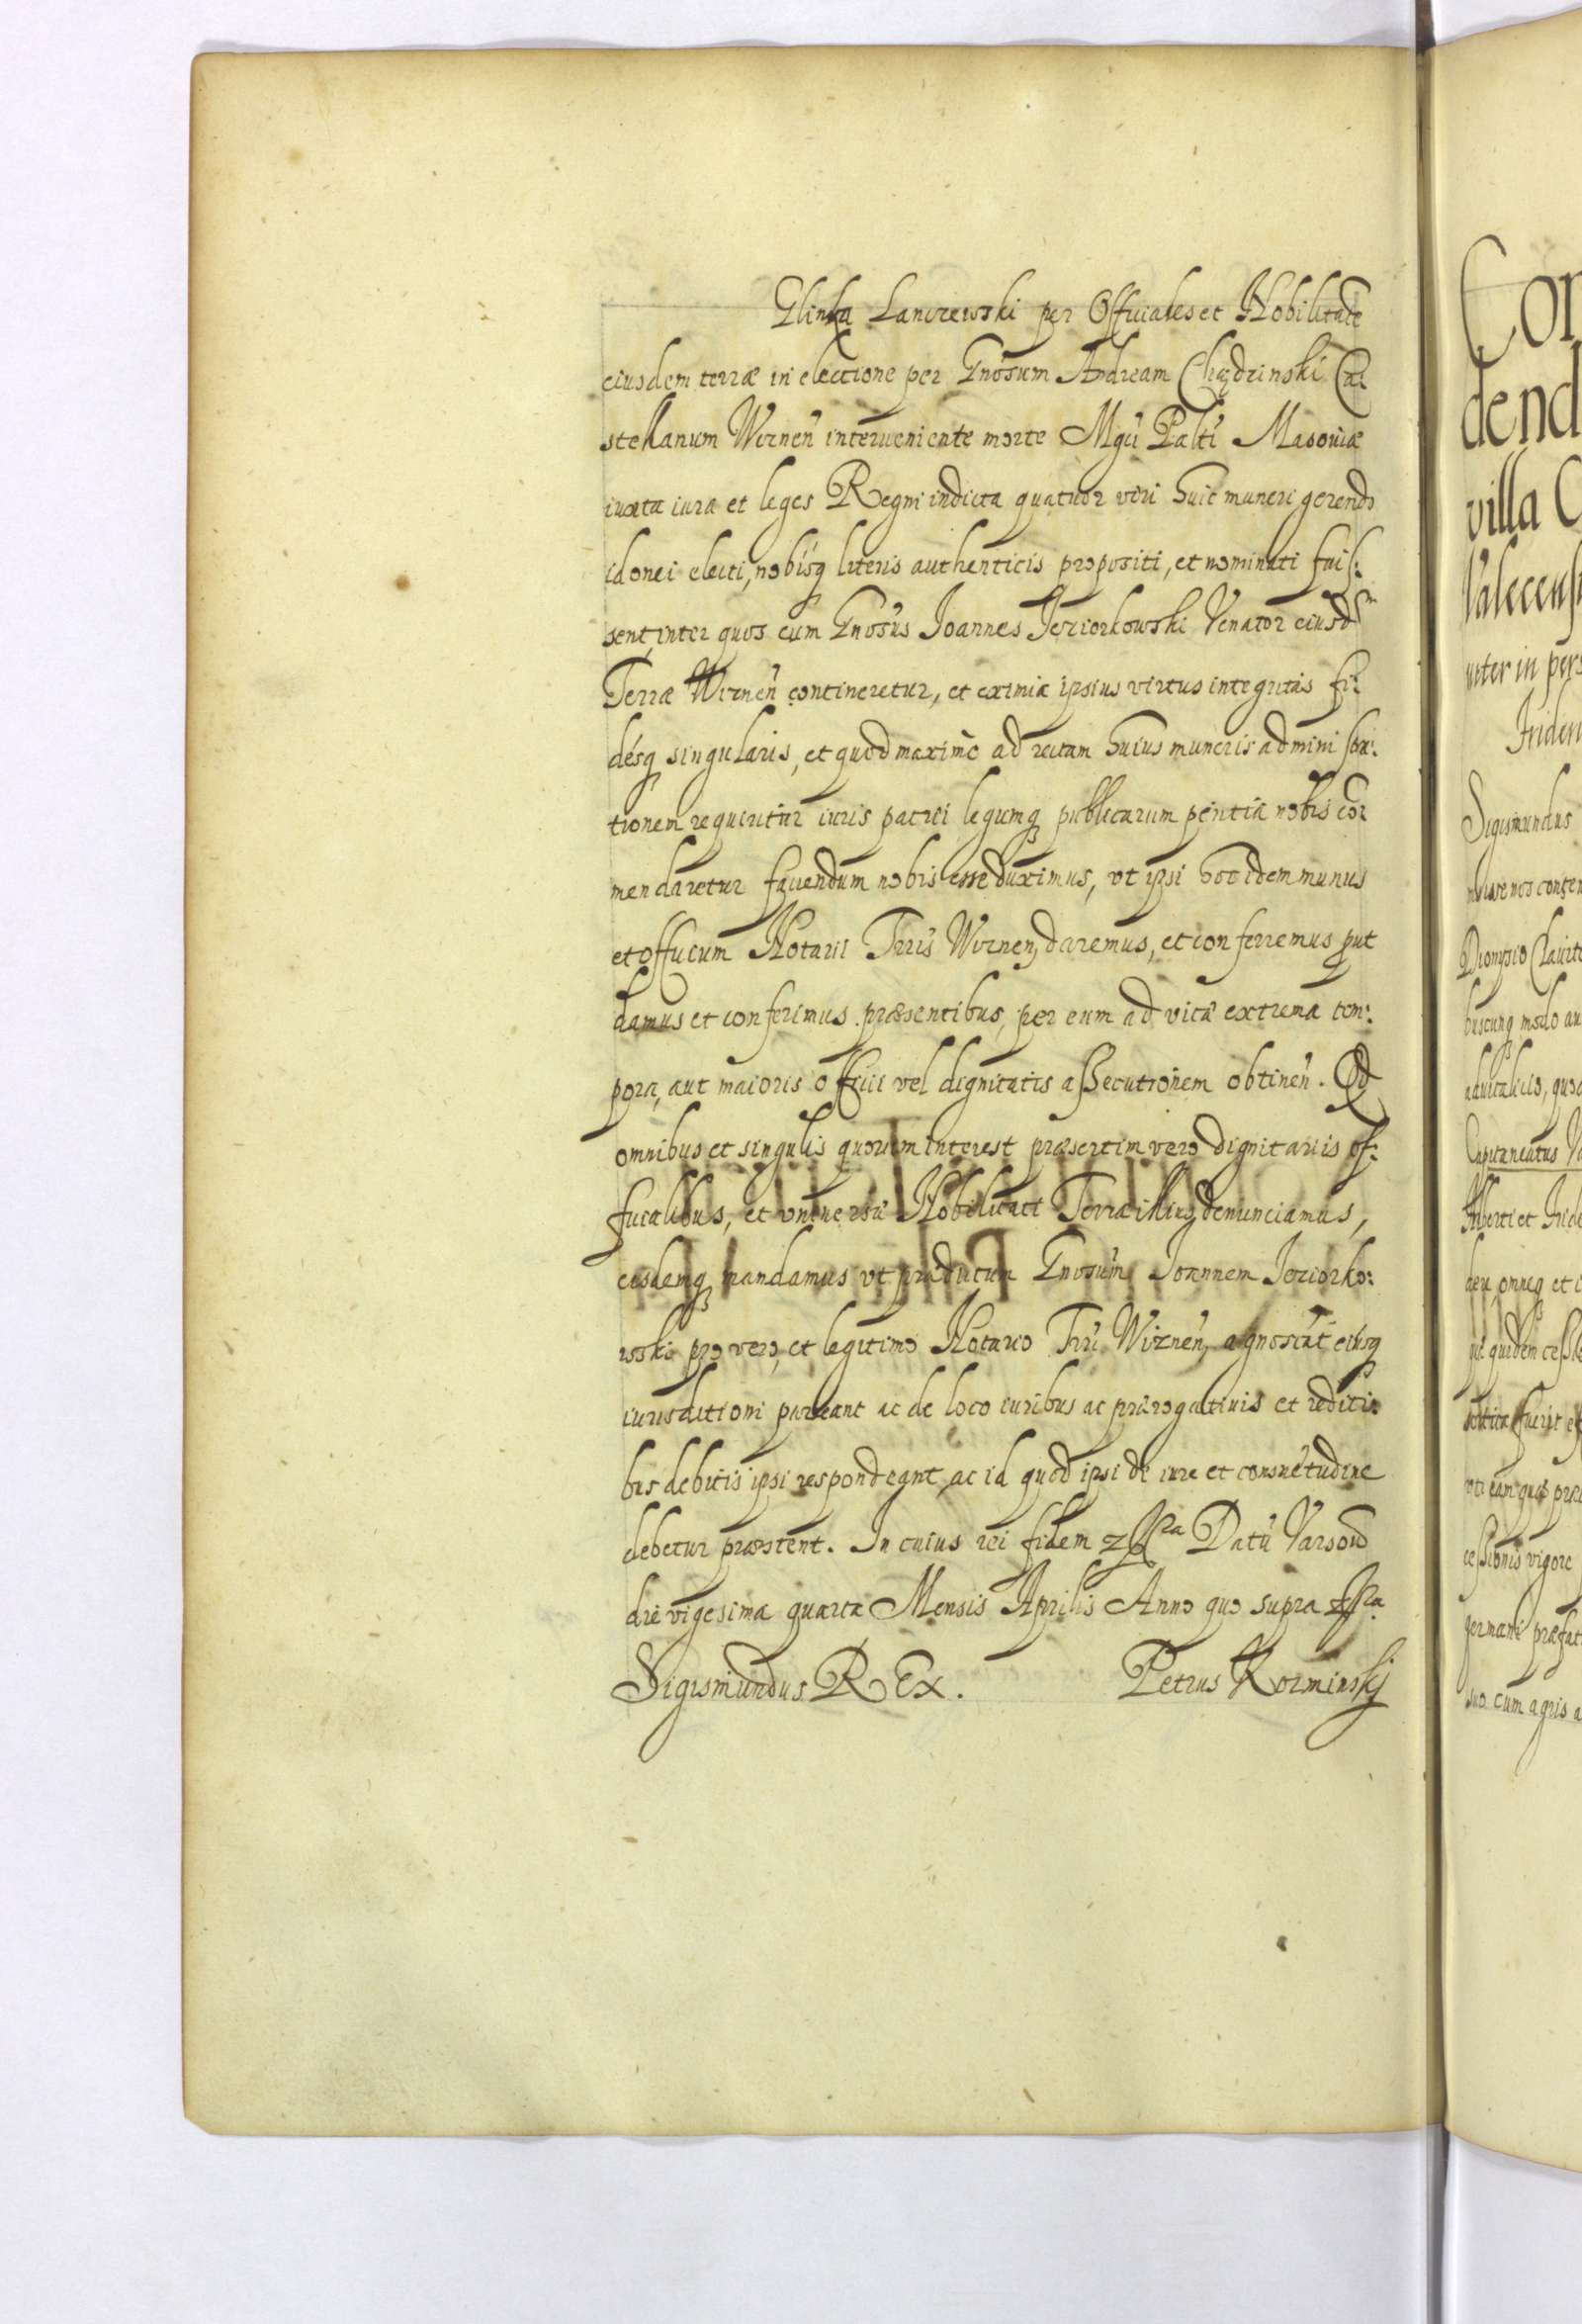 Glinka Lanczewski per Officiales et Nobilitatē
eiusdem terræ in electione per Gnosum Andream Chądzinski Ca:
stellanum Wiznen̄ interueniente morte Mgci Palti Masouiæ
iuxta iura et leges Regni indicta quatuor viri huic muneri gerendo
idonei electi, nobisq literis authenticis propositi, et nominati fuis:
sent, inter quos cum Gnosus Joannes Jeziorkowski Venator eiusdm
Terræ Wiznen̄ contineretur, et eximia ipsius virtus integritas fi:
désq singularis, et quod maximè ad rectam huius muneris administra:
tionem requiritur iuris patrii legumq publicarum peritia nobis com̄
mendaretur faciendum nobis esse duximus, vt ipsi hoc idem munus
et officium Notarii Trris Wiznen, daremus, et conferremus put
damus et conferimus præsentibus, per eum ad vitæ extrema tem:
pora, aut maioris officii vel dignitatis assecutionem obtinen̄. Qd
omnibus et singulis quorum interest præsertim vero dignitariis of:
ficialibus, et vniuersæ Nobilitati Terræ illius denunciamus,
eisdemq mandamus vt prædictum Gnosum Joannem Jeziorko:
wski pro vero, et legitimo Notario Trri Wiznen̄, agnoscāt eiusq
iurisdictioni pareant ac de loco iuribus ac prærogatiuis et rediti:
bus debitis ipsi respondeant, ac id quod ipsi de iure et consuetudine
debetur præstent. In cuius rei fidem zssra Datū Varsou
die vigesima quarta Mensis Aprilis Anno quo supra zssra
Sigismundus REx. Petrus Kozminskj
Con
dend
villa C
Valecens
inter in pers
Friden
Sigismundus
Dionysio
buscunq modo au
aduitalicio, quo
Capitaneatus Va
Alberti et Fride
omneq et
quidem cess
fuerit
cessionis vigore
germani præfat
suo cum agris a